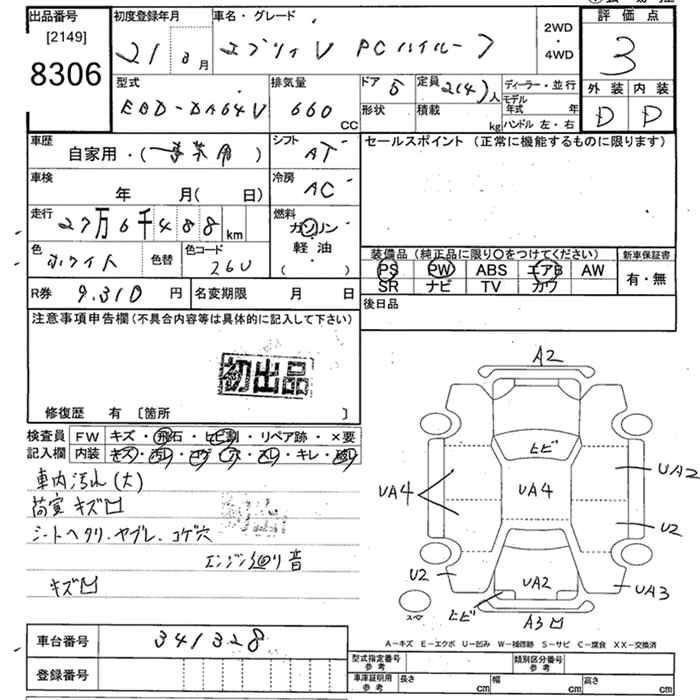 出品番号 初度登録年月 車名・グレード 2WD・4WD 評価点
[2149]
8306 21 8月 エブリイV PCハイルーフ 3
型式 排気量 ドア 5 定員 2(4)人 ディーラー・並行 外装 内装
EBD-DA64V 660 CC 形状 積載 kg モデル年式 年 D D
ハンドル 左・右
車歴 自家用・(事業用) シフト AT セールスポイント (正常に機能するものに限ります)
車検 年 月( 日) 冷房 AC
走行 27万6千488km 燃料 ガソリン
軽油
( )
色 ホワイト 色替 色コード 26U
装備品 (純正品に限り○をつけてください) 新車保証書
PS PW ABS エアB AW 有・無
SR ナビ TV カワ
R券 9.310円 名変期限 月 日 後日品
注意事項申告欄 (不具合内容等は具体的に記入して下さい)
初出品
修復歴 有 [箇所 ]
検査員 FW キズ・飛石・ヒビ割・リペア跡・×要
記入欄 内装 キズ・汚レ・コゲ・穴・スレ・キレ・破レ
車内汚れ(大)
荷室キズ凹
シートヘタリ、ヤブレ、コゲ穴
エンジン廻り音
キズ凹
A2
ヒビ
UA4 UA4 UA2
U2
U2 UA2 UA3
ヒビ
A3凹
A-キズ E-エクボ U-凹み W-補修跡 S-サビ C-腐食 XX-交換済
車台番号 341328
登録番号
型式指定番号 参考 類別区分番号 参考
車庫証明用 参考 長さ cm 幅 cm 高さ cm